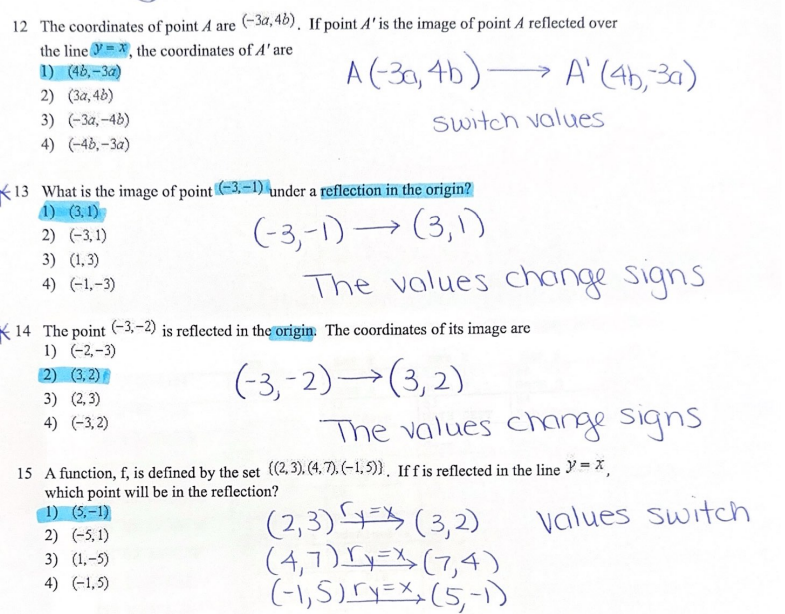 12 The coordinates of point A are (-3a, 4b). If point A' is the image of point A reflected over
the line y = x, the coordinates of A' are
1) (4b, -3a)
A(-3a, 4b) → A' (4b, -3a)
2) (3a, 4b)
3) (-3a, -4b)
switch values
4) (-4b, -3a)
13 What is the image of point (-3, -1) under a reflection in the origin?
1) (3, 1)
(-3, -1) → (3, 1)
2) (-3, 1)
3) (1, 3)
4) (-1, -3)
The values change signs
14 The point (-3, -2) is reflected in the origin. The coordinates of its image are
1) (-2, -3)
2) (3, 2)
(-3, -2) → (3, 2)
3) (2, 3)
4) (-3, 2)
The values change signs
15 A function, f, is defined by the set {(2, 3), (4, 7), (-1, 5)}. If f is reflected in the line y = x,
which point will be in the reflection?
1) (5, -1)
(2, 3) ry=x → (3, 2) values switch
2) (-5, 1)
(4, 7) ry=x → (7, 4)
3) (1, -5)
4) (-1, 5)
(-1, 5) ry=x → (5, -1)